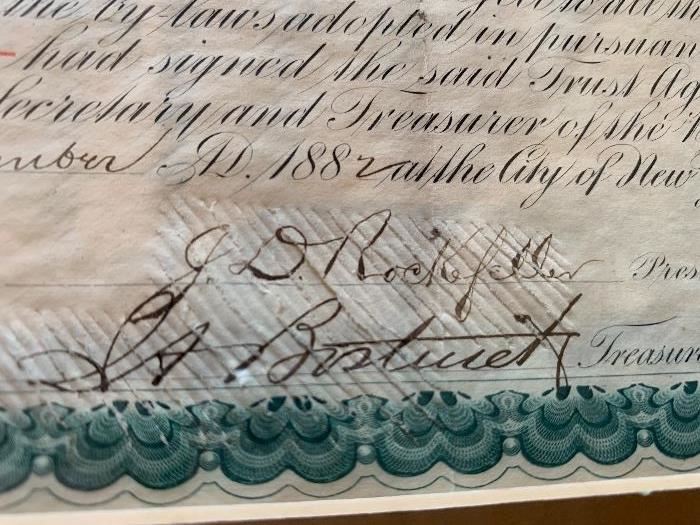 the by-laws adopted in pursuan
had signed the said Trust Ag
Secretary and Treasurer of the
mber A.D. 1882 at the City of New
J. D. Rockefeller Pres
J A Bostwick Treasur